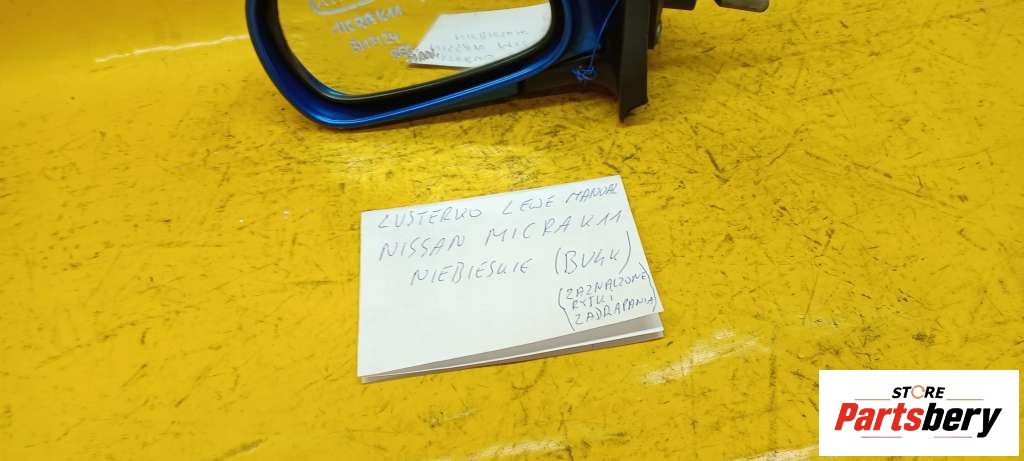 MICRA K11
LUSTERKO LEWE MANUAL
NISSAN MICRA K11
NIEBIESKIE (BV4K)
(ZAZNACZONE
RYSKI
ZADRAPANIA)
STORE
Partsbery